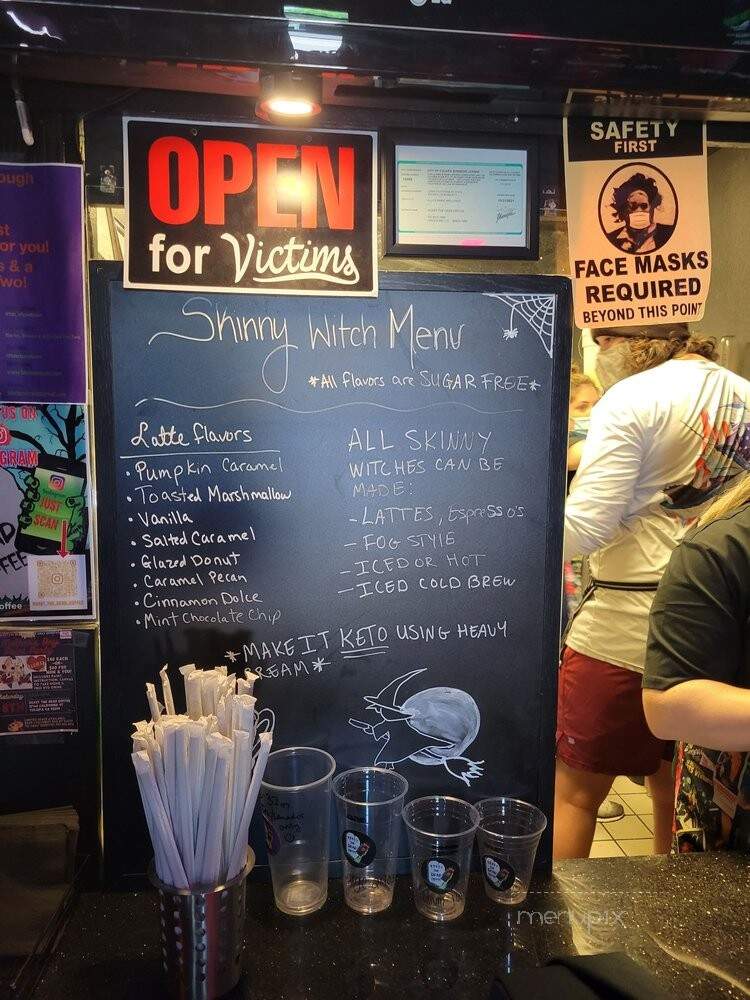 OPEN
for Victims
SAFETY
FIRST
FACE MASKS
REQUIRED
BEYOND THIS POINT
Skinny Witch Menu
*All flavors are SUGAR FREE*
Latte flavors
• Pumpkin Caramel
• Toasted Marshmallow
• Vanilla
• Salted Caramel
• Glazed Donut
• Caramel Pecan
• Cinnamon Dolce
• Mint Chocolate Chip
ALL SKINNY
WITCHES CAN BE
MADE:
- LATTES, Espresso's
- FOG STYLE
- ICED OR HOT
- ICED COLD BREW
*MAKE IT KETO USING HEAVY
CREAM*
US ON
GRAM
JUST
SCAN
offee
32 oz
only
menupix